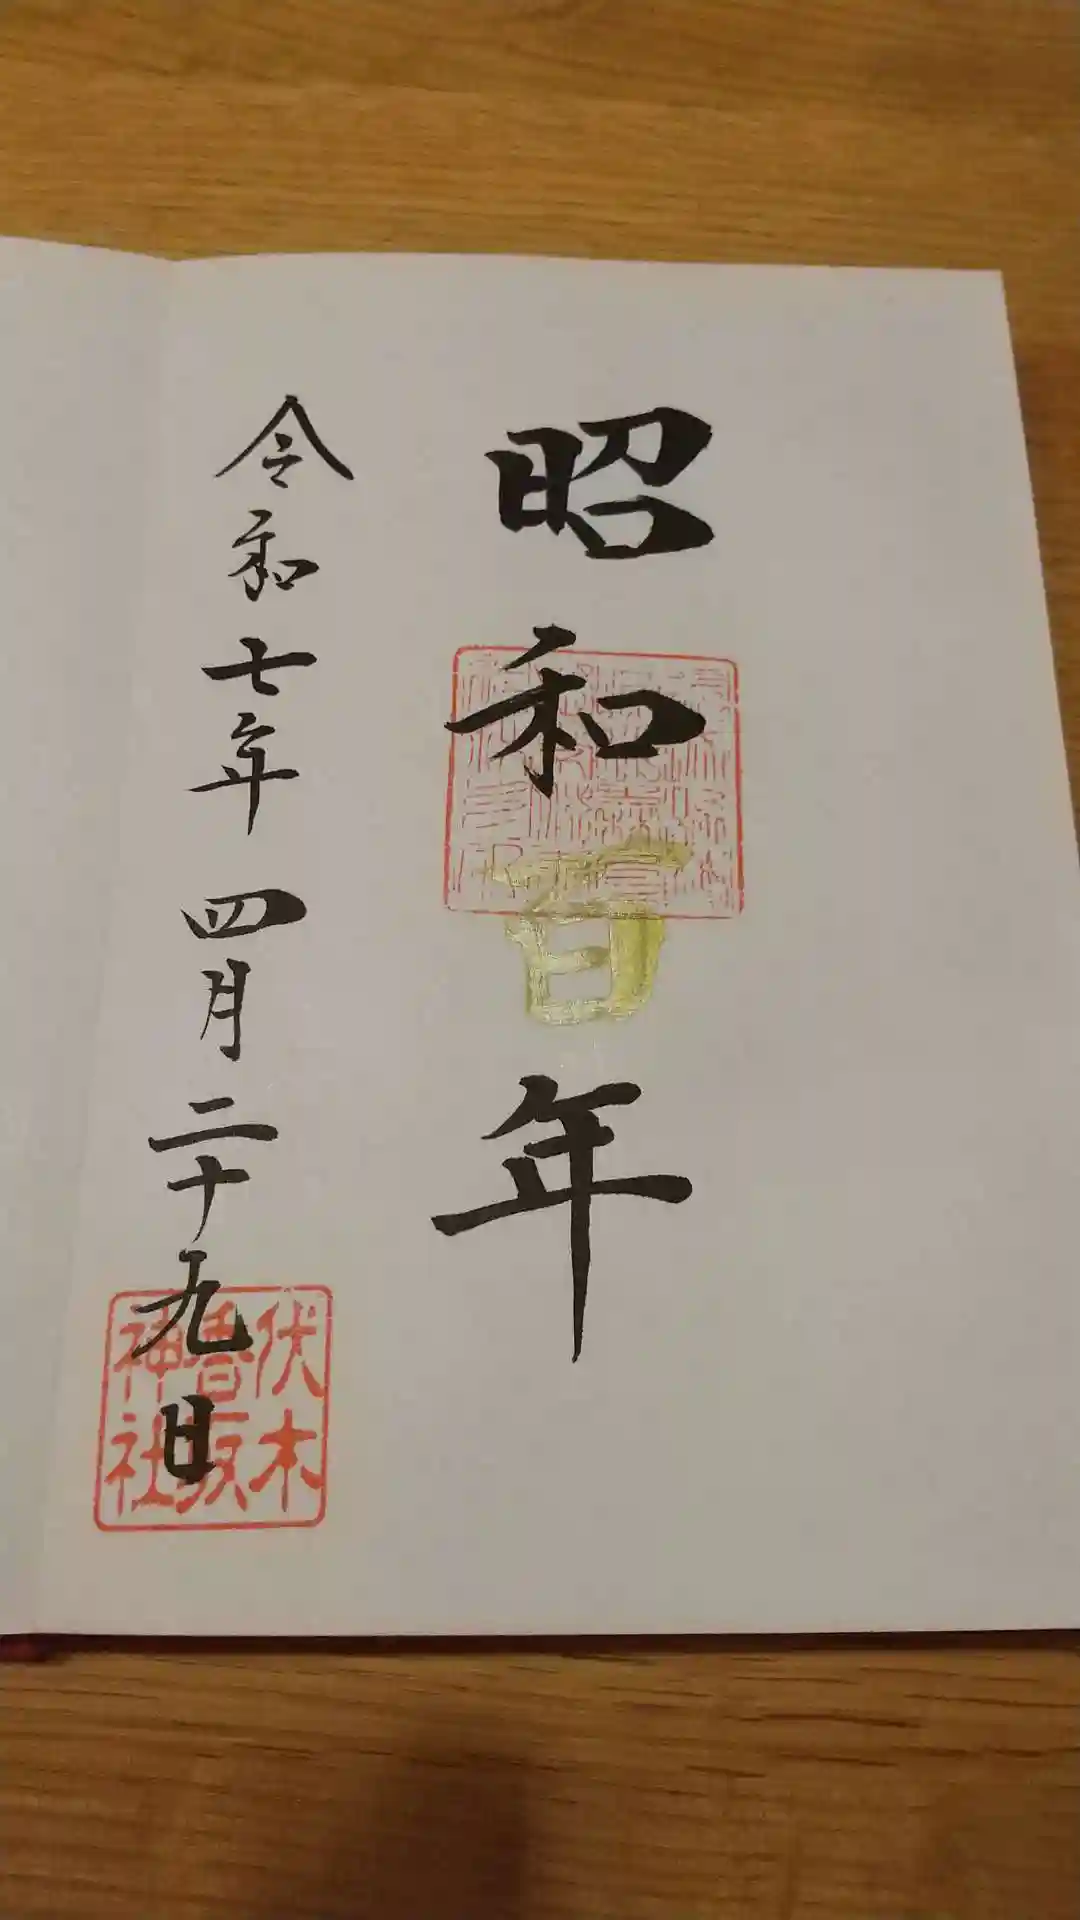 昭和百年
令和七年 四月二十九日
伏木
香取
神社